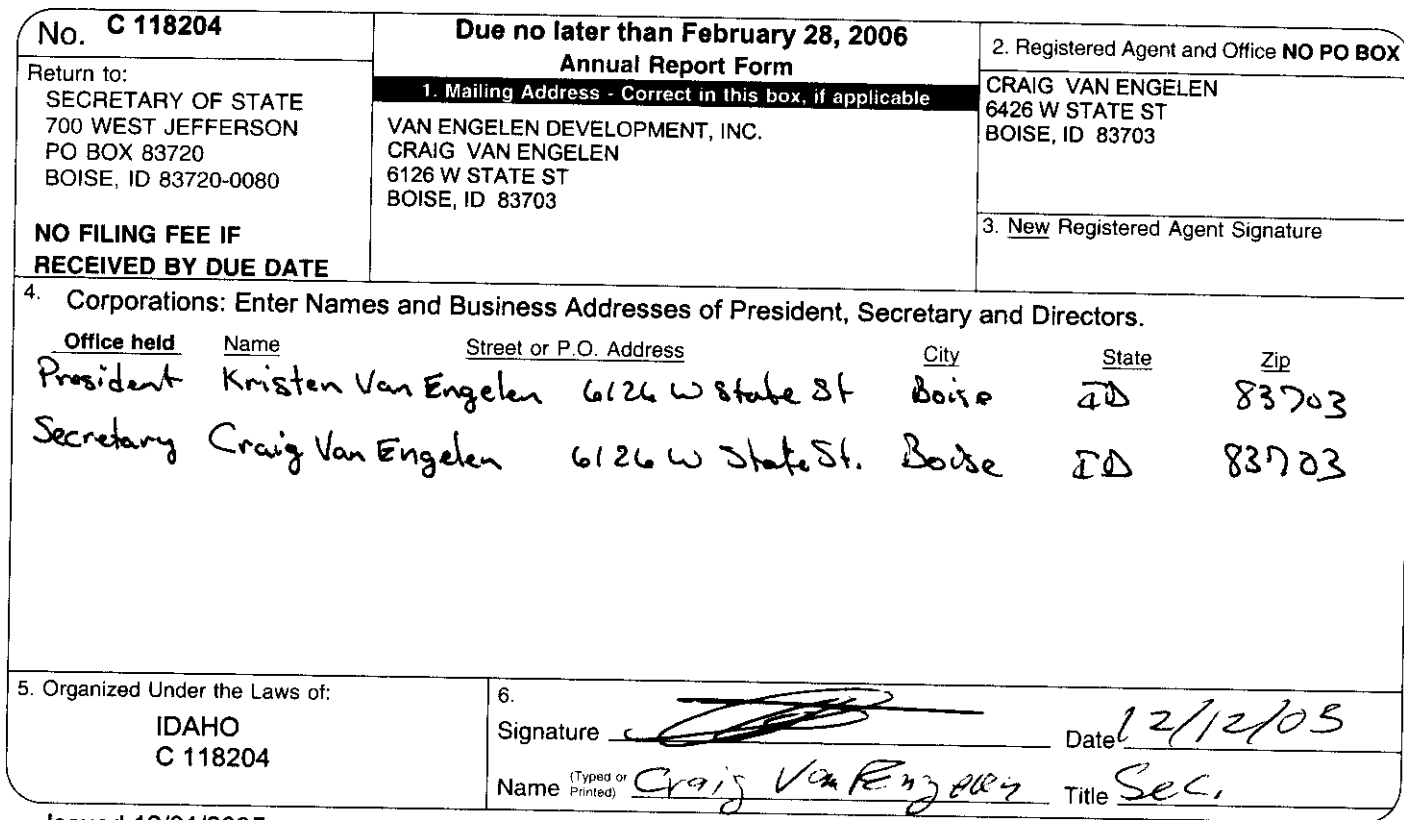 No. C 118204
Return to:
SECRETARY OF STATE
700 WEST JEFFERSON
PO BOX 83720
BOISE, ID 83720-0080
NO FILING FEE IF
RECEIVED BY DUE DATE
Due no later than February 28, 2006
Annual Report Form
1. Mailing Address - Correct in this box, if applicable
VAN ENGELEN DEVELOPMENT, INC.
CRAIG VAN ENGELEN
6126 W STATE ST
BOISE, ID 83703
2. Registered Agent and Office NO PO BOX
CRAIG VAN ENGELEN
6426 W STATE ST
BOISE, ID 83703
3. New Registered Agent Signature
4. Corporations: Enter Names and Business Addresses of President, Secretary and Directors.
Office held Name Street or P.O. Address City State Zip
President Kristen Van Engelen 6126 W State St Boise ID 83703
Secretary Craig Van Engelen 6126 W State St. Boise ID 83703
5. Organized Under the Laws of:
IDAHO
C 118204
6.
Signature Date 12/12/05
Name (Typed or Printed) Craig Van Engelen Title Sec.